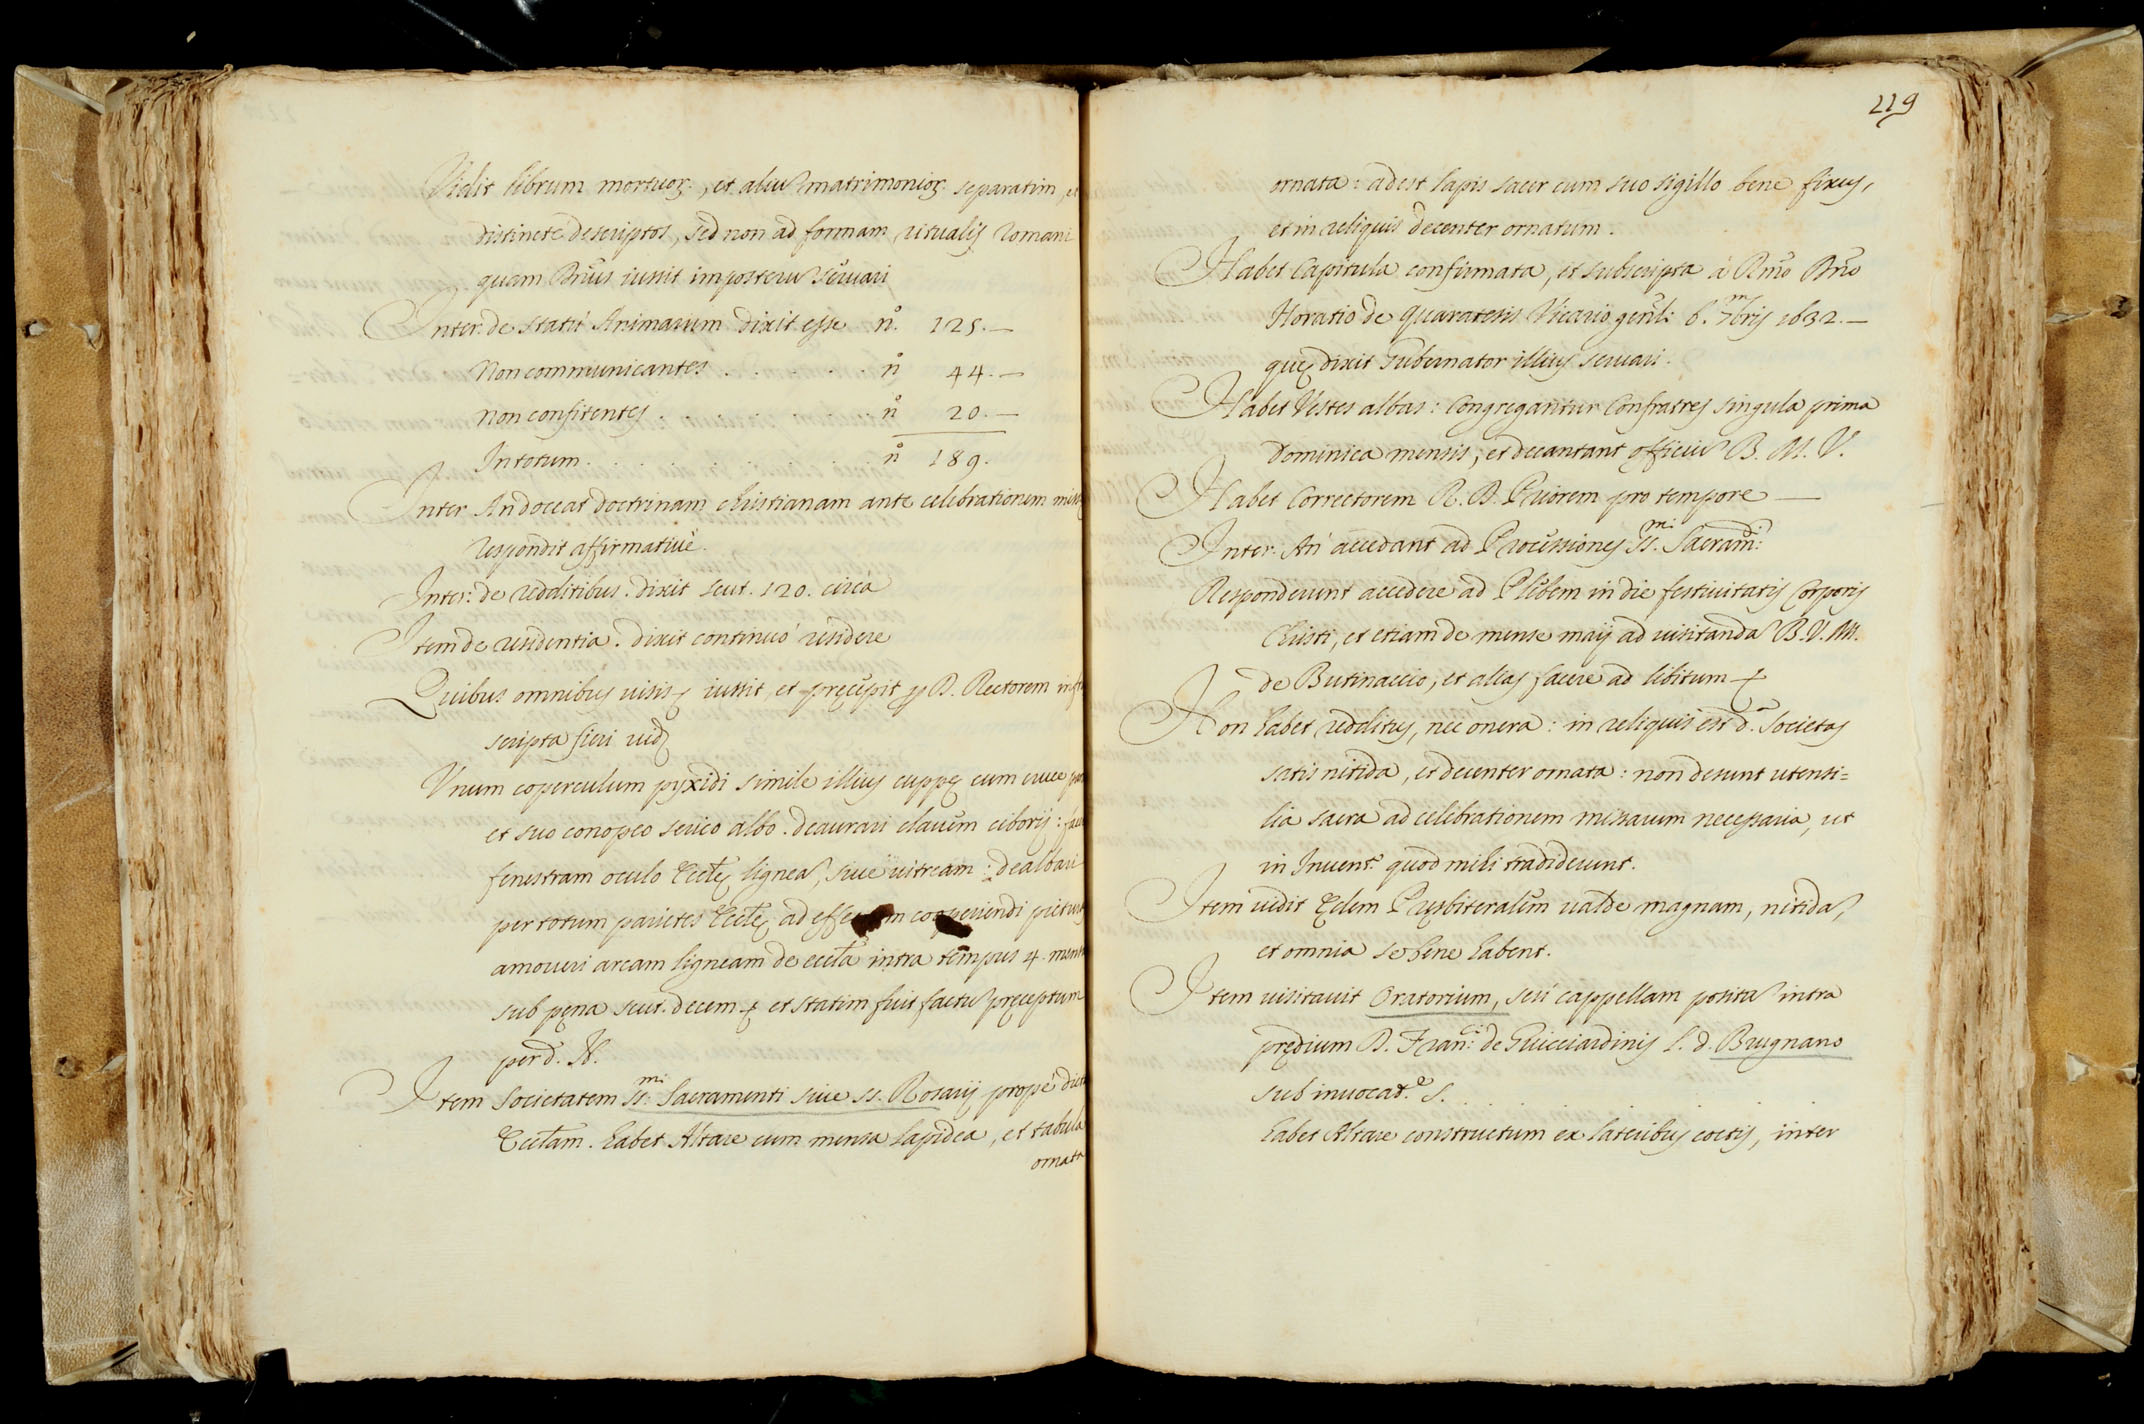 Vidit librum mortuoꝝ, et aliu matrimonioꝝ separatim, et
distincte descriptos, sed non ad formam ritualis Romani
quam Dnus iussit imposteru servari
Inter. de statu Animarum dixit esse n.° 125.—
Non communicantes . . . . . . n° 44.—
non confitentes . . . . . . . . n° 20.—
In totum . . . . . . . . . . n° 189.
Inter. An doceat doctrinam christianam ante celebrationem
respondit affirmative.
Inter: de redditibus. dixit scut. 120. circa
Item de residentia. dixit continuò residere
Quibus omnibus visis iussit, et precepit D. Rectorem
scripta fieri
Vnum coperculum pyxidi simile illius cuppę cum cruce
et suo conopeo serico albo. deaurari clavem ciborij:
fenestram oculo Eccle lignea, sive vitream: dealbari
per totum parietes Eccle, ad cooperiendi
amoveri arcam ligneam de eccla intra tempus 4.
sub pęna scut. decem et statim fuit factu pręceptum
per d. N.
Item Societatem SS.mi Sacramenti sive SS. Rosarij propè
Ecclam. habet Altare cum mensa lapidea, et tabula
ornata
119
ornata: adest lapis sacer cum suo sigillo bene fixus,
et in reliquis decenter ornatum.
Habet Capitula confirmata, et subscripta à Rmo Dno
Horatio de Quaratesis Vicario genli 6. 7mbris 1632.—
quę dixit Gubernator illius servari.
Habet Vestes albas: Congregantur Confratres singula prima
Dominica mensis, et decantant officiu B. M. V.
Habet Correctorem R. D. Priorem pro tempore —
Inter. An accedant ad Processiones SS.mi Sacramti:
Responderunt accedere ad Plebem in die festivitatis Corporis
Christi, et etiam de mense maij ad visitanda B. V. M.
de Butinaccio, et alias facere ad libitum
Non habet redditus, nec onera: in reliquis est d.a Societas
satis nitida, et decenter ornata: non desunt utensi=
lia sacra ad celebrationem missarum necessaria, ut
in Invent.° quod mihi tradiderunt.
Item vidit Ędem Pręsbiteralem valde magnam, nitida,
et omnia se bene habent.
Item visitavit Oratorium, seu cappellam posita intra
prędium D. Fran:ci de Guicciardinis l. d. Brugnano
sub invocat.e S. . . . . . .
habet Altare constructum ex lateribus coctis, inter